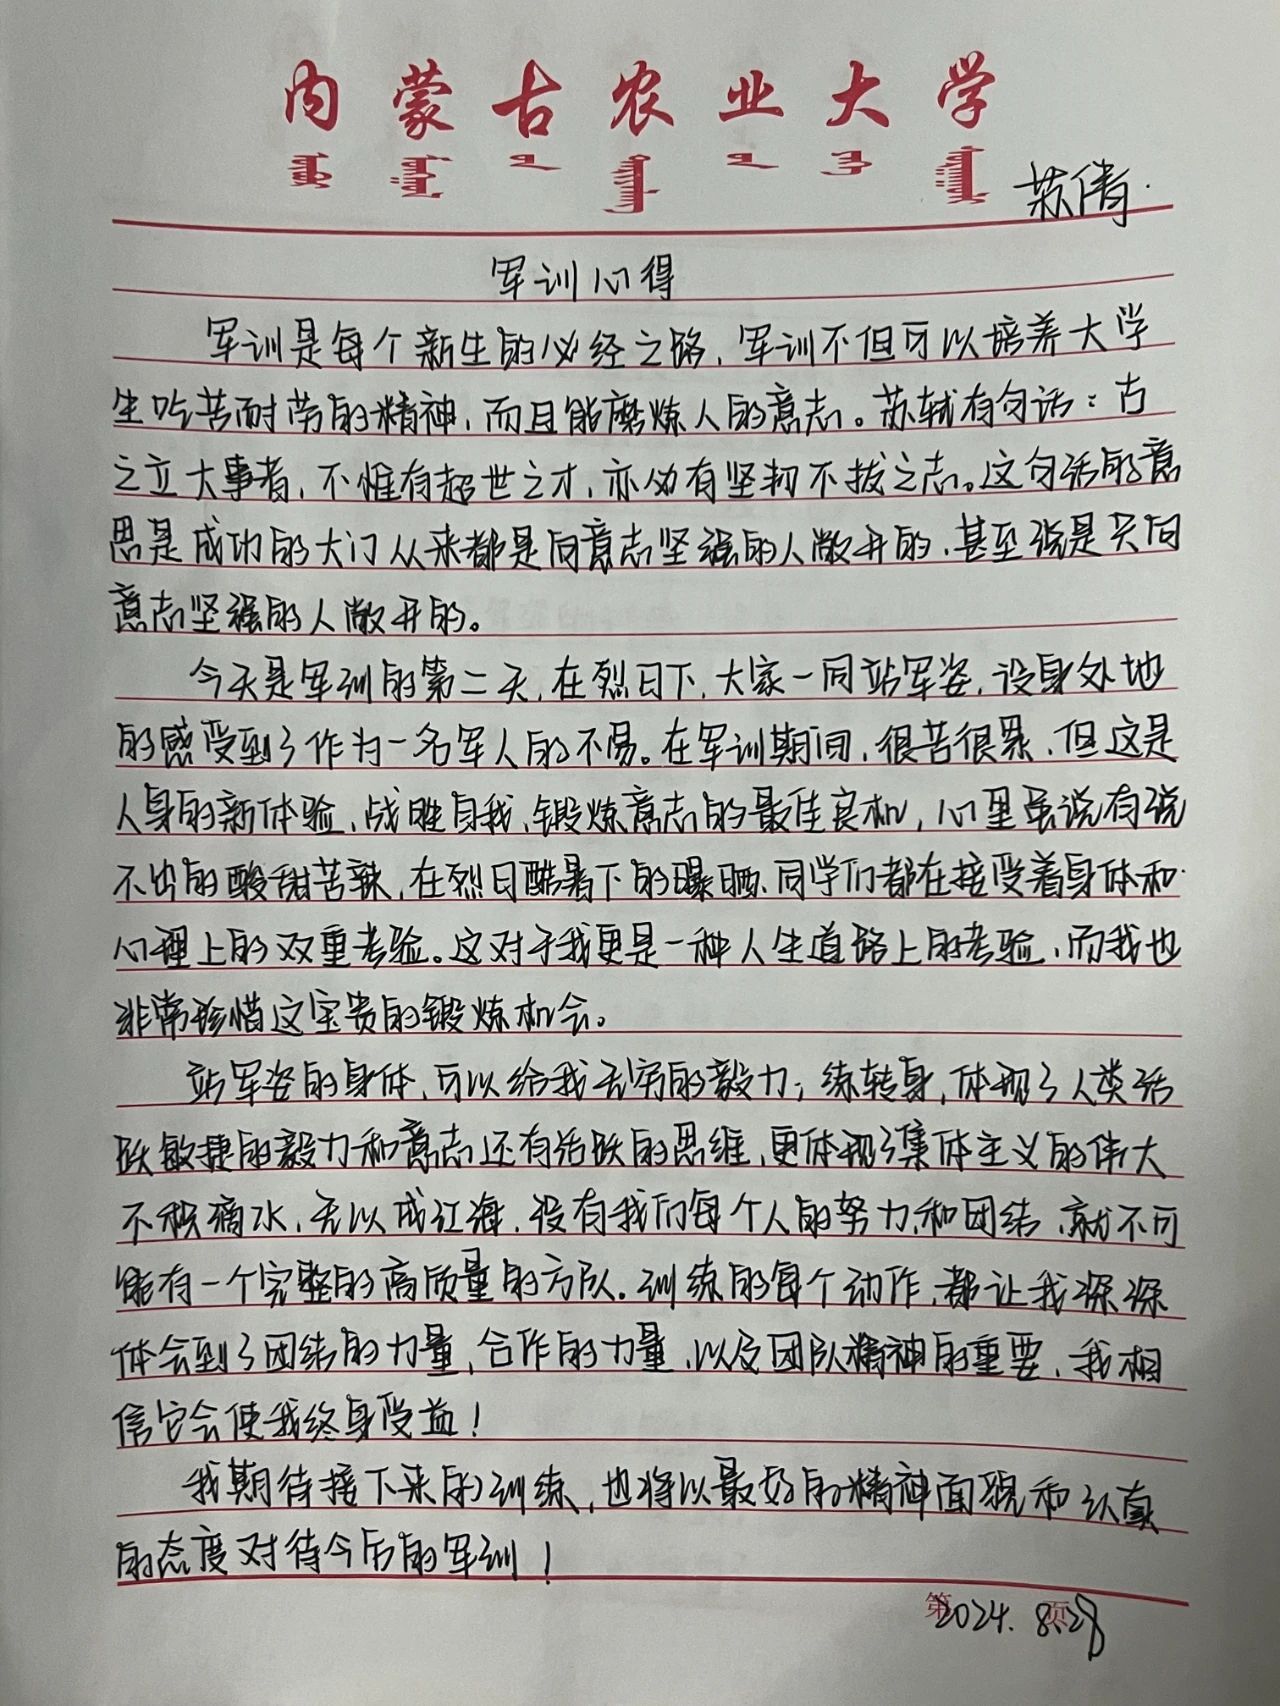 内蒙古农业大学
苏倩.
军训心得
军训是每个新生的必经之路，军训不但可以培养大学
生吃苦耐劳的精神，而且能磨炼人的意志。苏轼有句话：古
之立大事者，不惟有超世之才，亦必有坚韧不拔之志。这句话的意
思是成功的大门从来都是向意志坚强的人敞开的，甚至说是只向
意志坚强的人敞开的。
今天是军训的第二天，在烈日下，大家一同站军姿，设身处地
的感受到了作为一名军人的不易。在军训期间，很苦很累，但这是
人身的新体验，战胜自我，锻炼意志的最佳良机，心里虽说有说
不出的酸甜苦辣，在烈日酷暑下的曝晒，同学们都在接受着身体和
心理上的双重考验。这对于我更是一种人生道路上的考验，而我也
非常珍惜这宝贵的锻炼机会。
站军姿的身体，可以给我无穷的毅力；练转身，体现了人类活
跃敏捷的毅力和意志还有活跃的思维，更体现了集体主义的伟大
不积滴水，无以成江海，没有我们每个人的努力和团结，就不可
能有一个完整的高质量的方队。训练的每个动作，都让我深深
体会到了团结的力量，合作的力量，以及团队精神的重要，我相
信它会使我终身受益！
我期待接下来的训练，也将以最好的精神面貌和认真
的态度对待今后的军训！
第 页
2024.8.28